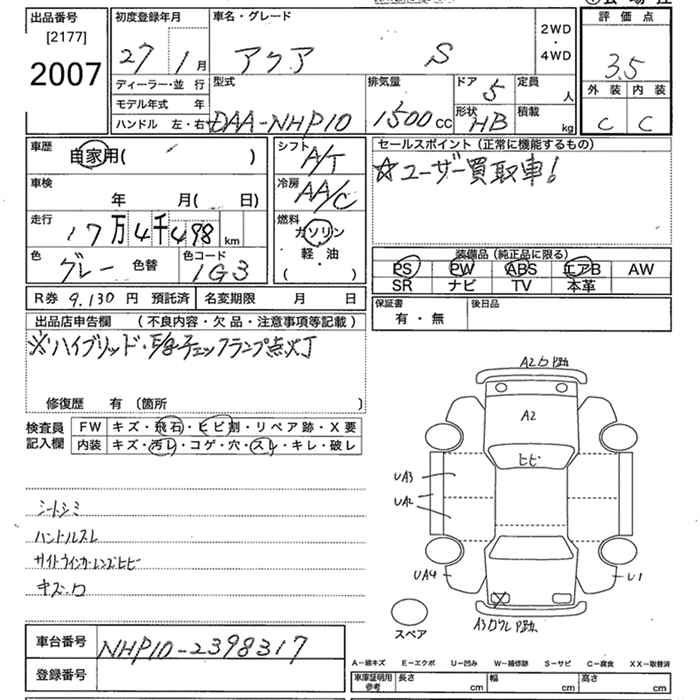 出品番号 [2177] 2007
初度登録年月 27 / 1 月
車名・グレード アクア S
2WD・4WD
評価点 3.5
外装 内装
C C
ディーラー・並行
モデル年式 年
ハンドル 左・右
型式 DAA-NHP10
排気量 1500 cc
ドア 5
形状 HB
定員 人
積載 kg
車歴 自家用( )
シフト A/T
セールスポイント(正常に機能するもの)
☆ユーザー買取車!
車検 年 月( 日)
冷房 AA/C
走行 17万4千498 km
燃料 ガソリン 軽・油 ( )
色 グレー 色替
色コード 1G3
装備品(純正品に限る)
PS PW ABS エアB AW
SR ナビ TV 本革
R券 9,130 円 預託済
名変期限 月 日
保証書 有・無
後日品
出品店申告欄 (不良内容・欠品・注意事項等記載)
※ハイブリッド・チェックランプ点灯
修復歴 有 (箇所 )
検査員記入欄
FW キズ・飛石・ヒビ割・リペア跡・X要
内装 キズ・汚レ・コゲ・穴・スレ・キレ・破レ
シートシミ
ハンドルスレ
サイドウインカーレンズヒビ
キズ・凹
A2
ヒビ
UA3
UA2
UA4
U1
X
スペア
車台番号 NHP10-2398317
登録番号
A-線キズ E-エクボ U-凹み W-補修跡 S-サビ C-腐食 XX-取替済
車庫証明用参考 長さ cm 幅 cm 高さ cm